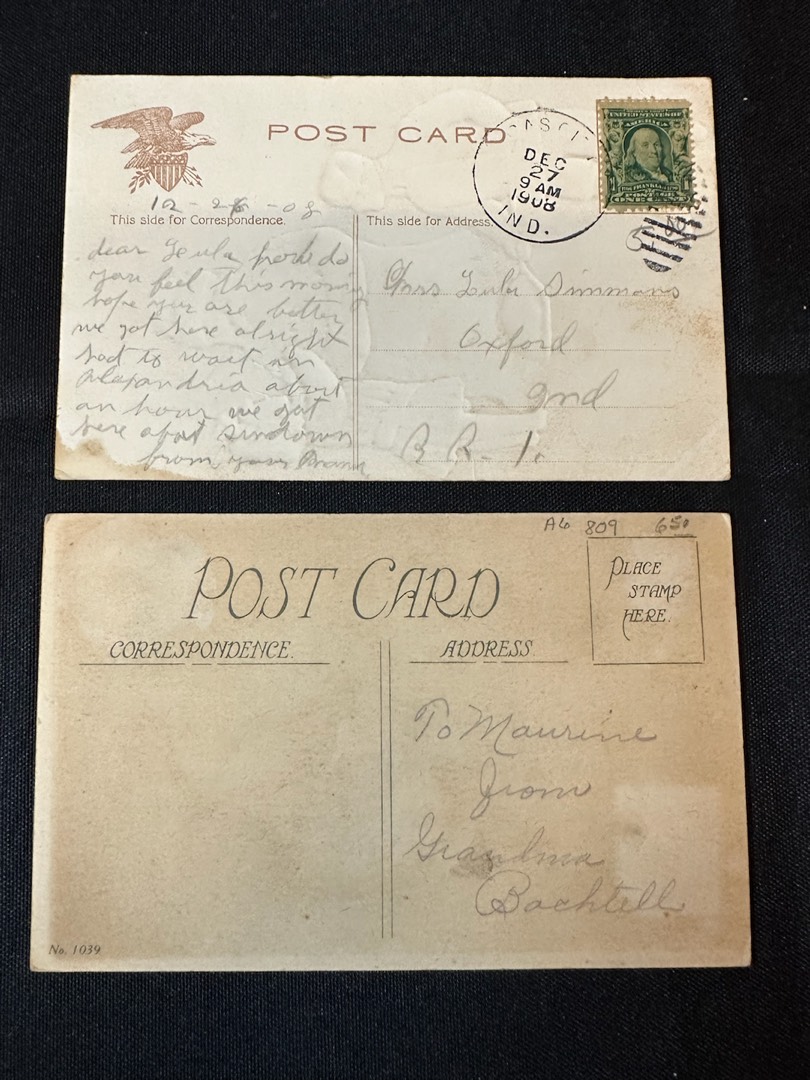 POST CARD
DEC
27
9 AM
1908
IND.
UNITED STATES OF
AMERICA
POSTAGE
ONE CENT
12-26-08
This side for Correspondence.
This side for Address.
dear Lula how do
you feel this morning
hope you are better
we got here alright
had to wait in
Alexandria about
an hour we got
here about sundown
from your
Mrs Lula Simmons
Oxford
Ind
R R - 1.
A6 809 650
POST CARD
PLACE
STAMP
HERE.
CORRESPONDENCE.
ADDRESS.
To Maurine
from
Grandma
Bachtell
No. 1039